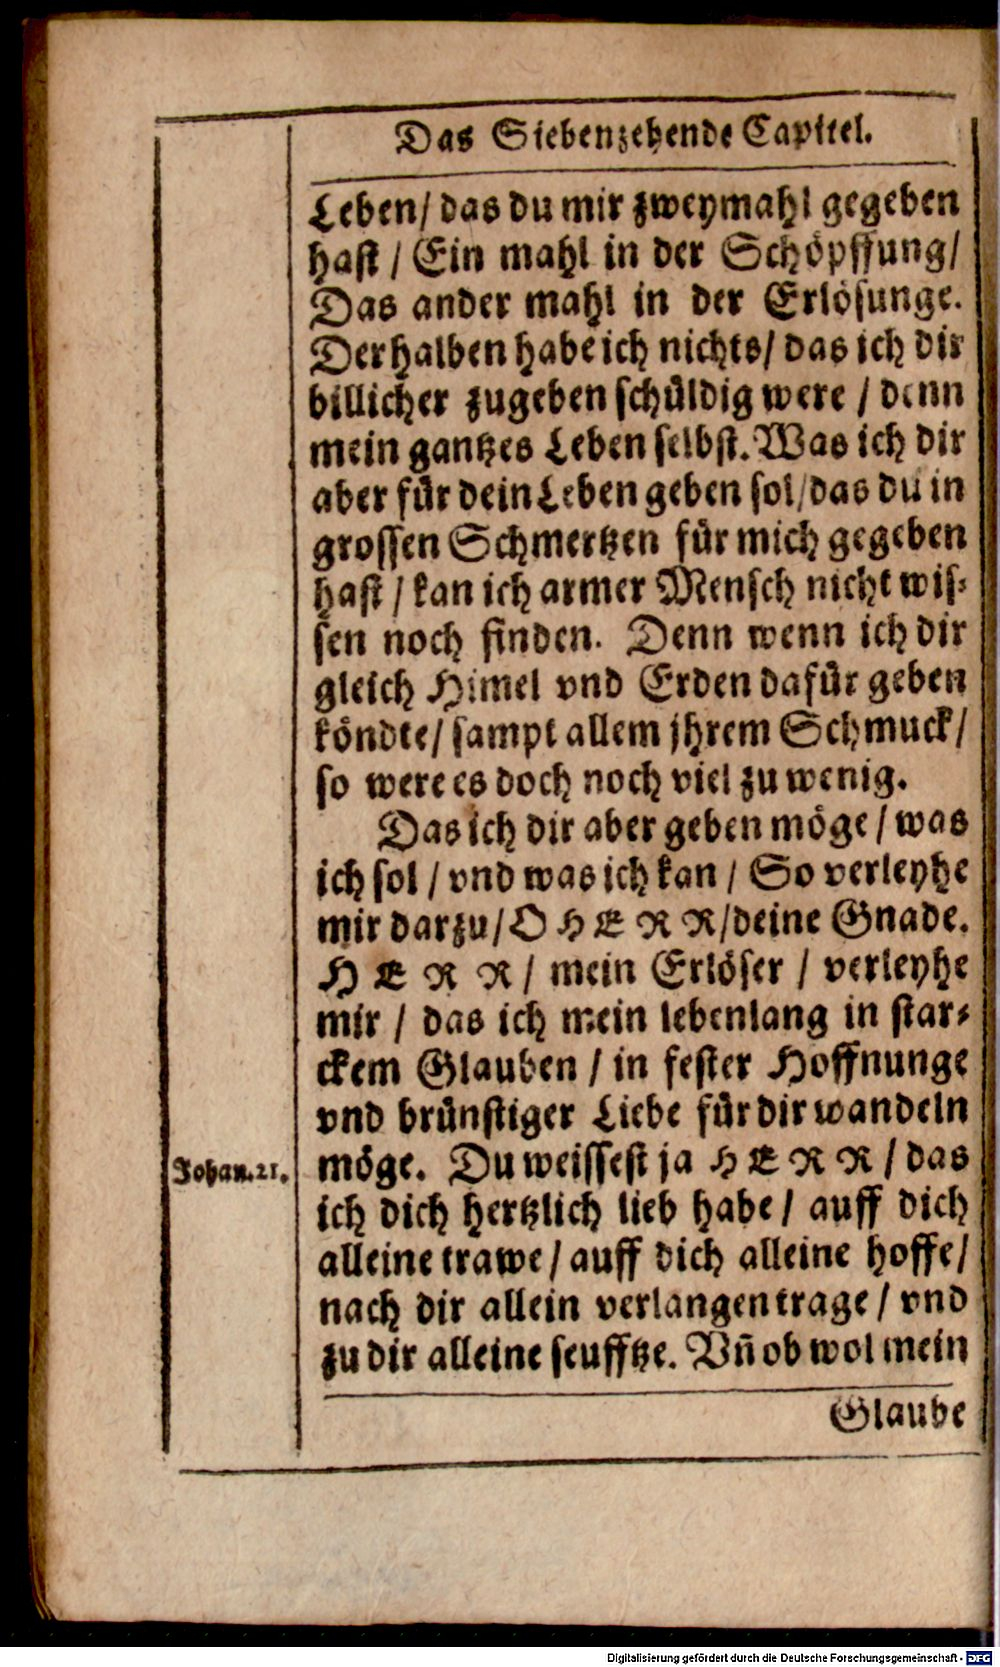 Das Siebenzehende Capitel.
Leben/ das du mir zweymahl gegeben
hast / Ein mahl in der Schöpffung/
Das ander mahl in der Erlösunge.
Derhalben habe ich nichts/ das ich dir
billicher zugeben schüldig were / denn
mein gantzes Leben selbst. Was ich dir
aber für dein Leben geben sol/ das du in
grossen Schmertzen für mich gegeben
hast / kan ich armer Mensch nicht wis-
sen noch finden. Denn wenn ich dir
gleich Himel vnd Erden dafür geben
köndte/ sampt allem jhrem Schmuck/
so were es doch noch viel zu wenig.
Das ich dir aber geben möge / was
ich sol / vnd was ich kan / So verleyhe
mir darzu/ O HERR/ deine Gnade.
HERR / mein Erlöser / verleyhe
mir / das ich mein lebenlang in star-
ckem Glauben / in fester Hoffnunge
vnd brünstiger Liebe für dir wandeln
möge. Du weissest ja HERR / das
Johan. 21.
ich dich hertzlich lieb habe / auff dich
alleine trawe / auff dich alleine hoffe/
nach dir allein verlangen trage / vnd
zu dir alleine seufftze. Vñ ob wol mein
Glaube
Digitalisierung gefördert durch die Deutsche Forschungsgemeinschaft - DFG